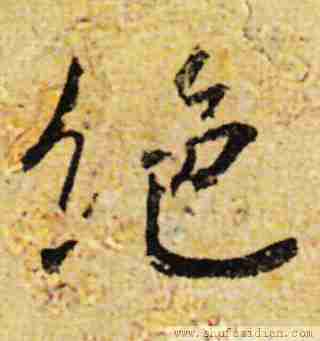 絶
www.shufazidian.com